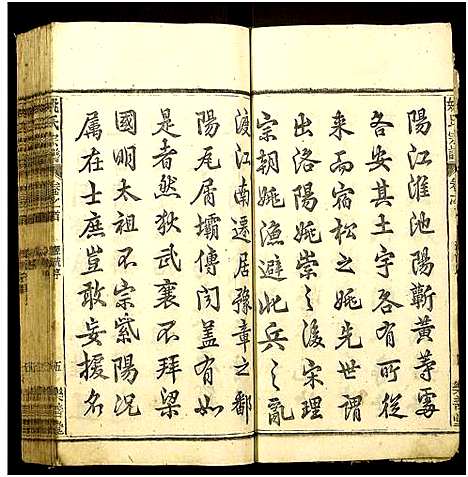 陽江淮池陽蘄黃等處
各安其土宇各有所從
来而宿松之姚先世謂
出洛陽姚崇之後宋理
宗朝姚漁避此兵之亂
渡江南遷居豫章之鄱
陽尾屑壩傳聞盖有如
是者然狄武襄不拜梁
國明太祖不宗紫陽况
属在士庶豈敢妄援名
姚氏宗譜
卷之首
五
樂善堂